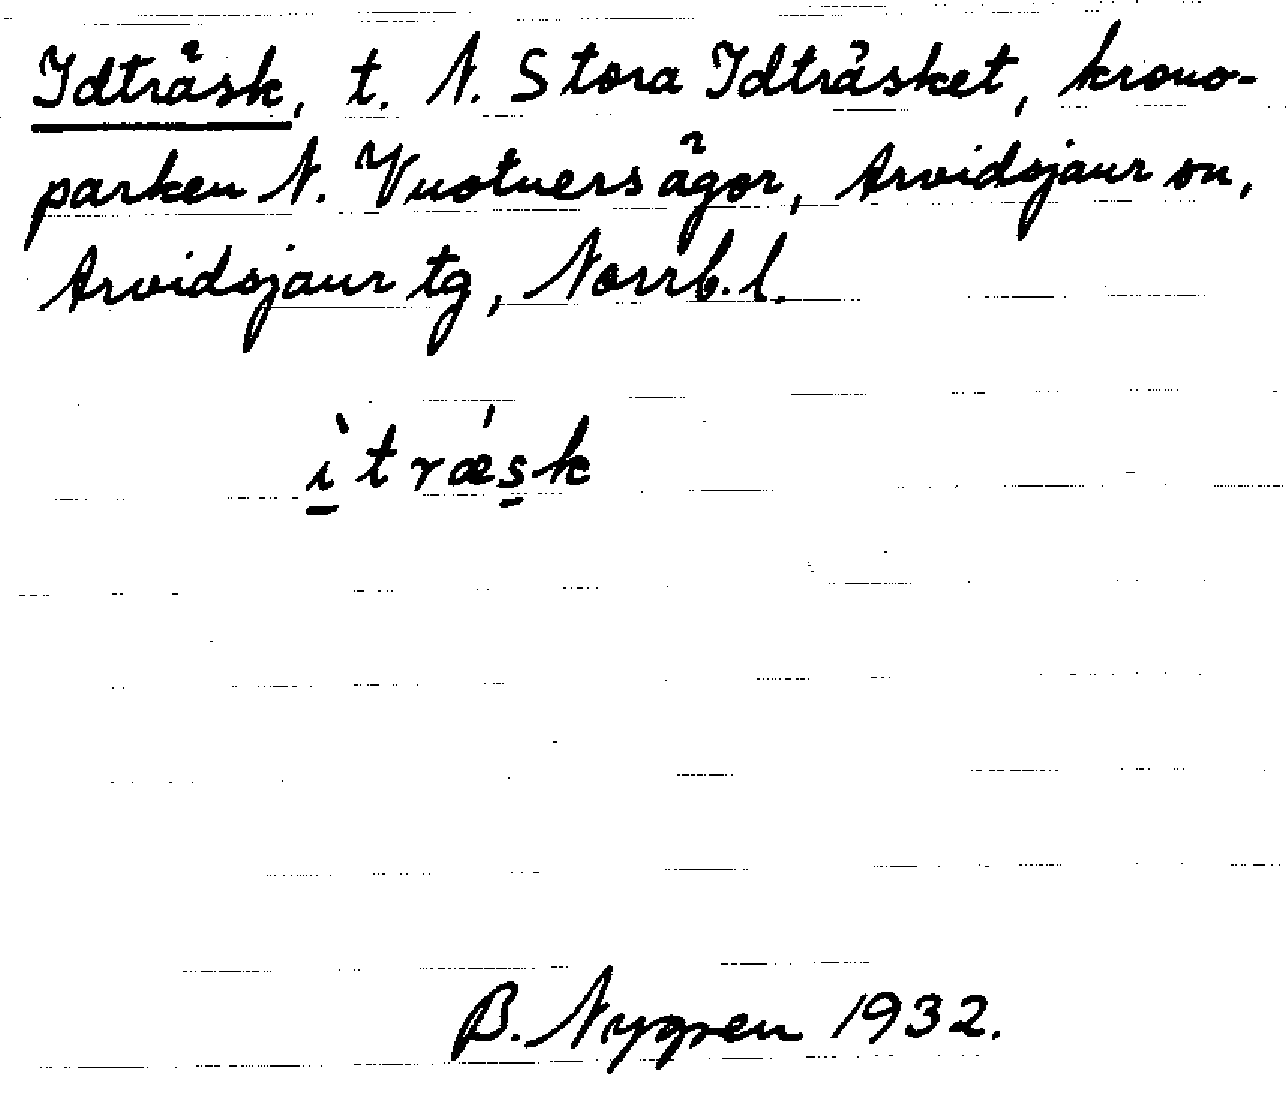 Idträsk, t. N. Stora Idträsket, krono-
parken N. Vuotnersägor, Arvidsjaur sn,
Arvidsjaur tg, Norrb. l.
ìtrǽsk
B. Nygren 1932.